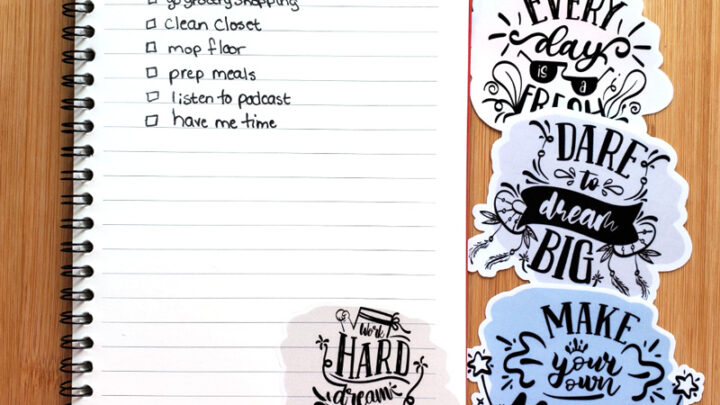 go grocery shopping
clean closet
mop floor
prep meals
listen to podcast
have me time
Work
HARD
dream
EVERY
day
is a
FRESH
DARE
to
dream
BIG
MAKE
your
own